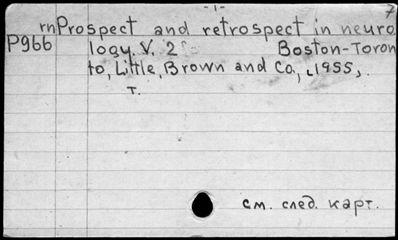 -1-
7
rnProspect and retrospect in neuro
P966 logy. V. 2 Boston-Toron
to, Little, Brown and Co., c1955,.
т.
см. след. карт.